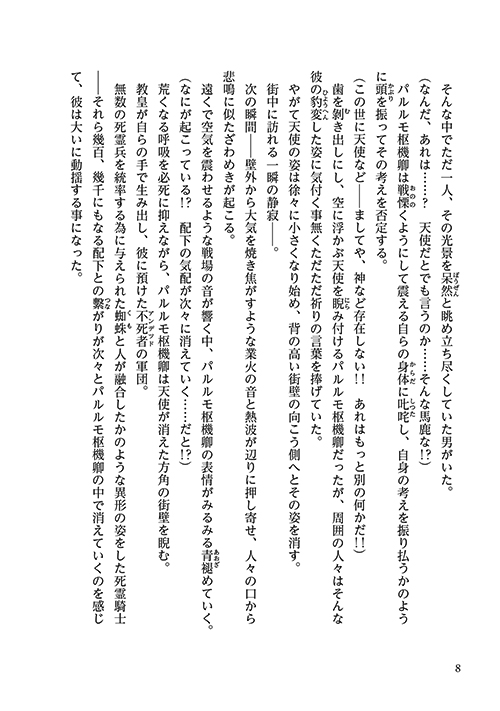 そんな中でただ一人、その光景を呆然と眺め立ち尽くしていた男がいた。
(なんだ、あれは……? 天使だとでも言うのか……そんな馬鹿な!?)
パルルモ枢機卿は戦慄くようにして震える自らの身体に叱咤し、自身の考えを振り払うかのよう
に頭を振ってその考えを否定する。
(この世に天使など――ましてや、神など存在しない!! あれはもっと別の何かだ!!)
歯を剝き出しにし、空に浮かぶ天使を睨み付けるパルルモ枢機卿だったが、周囲の人々はそんな
彼の豹変した姿に気付く事無くただただ祈りの言葉を捧げていた。
やがて天使の姿は徐々に小さくなり始め、背の高い街壁の向こう側へとその姿を消す。
街中に訪れる一瞬の静寂――。
次の瞬間――壁外から大気を焼き焦がすような業火の音と熱波が辺りに押し寄せ、人々の口から
悲鳴に似たざわめきが起こる。
遠くで空気を震わせるような戦場の音が響く中、パルルモ枢機卿の表情がみるみる青褪めていく。
(なにが起こっている!? 配下の気配が次々に消えていく……だと!?)
荒くなる呼吸を必死に抑えながら、パルルモ枢機卿は天使が消えた方角の街壁を睨む。
教皇が自らの手で生み出し、彼に預けた不死者の軍団。
無数の死霊兵を統率する為に与えられた蜘蛛と人が融合したかのような異形の姿をした死霊騎士
――それら幾百、幾千にもなる配下との繫がりが次々とパルルモ枢機卿の中で消えていくのを感じ
て、彼は大いに動揺する事になった。
8